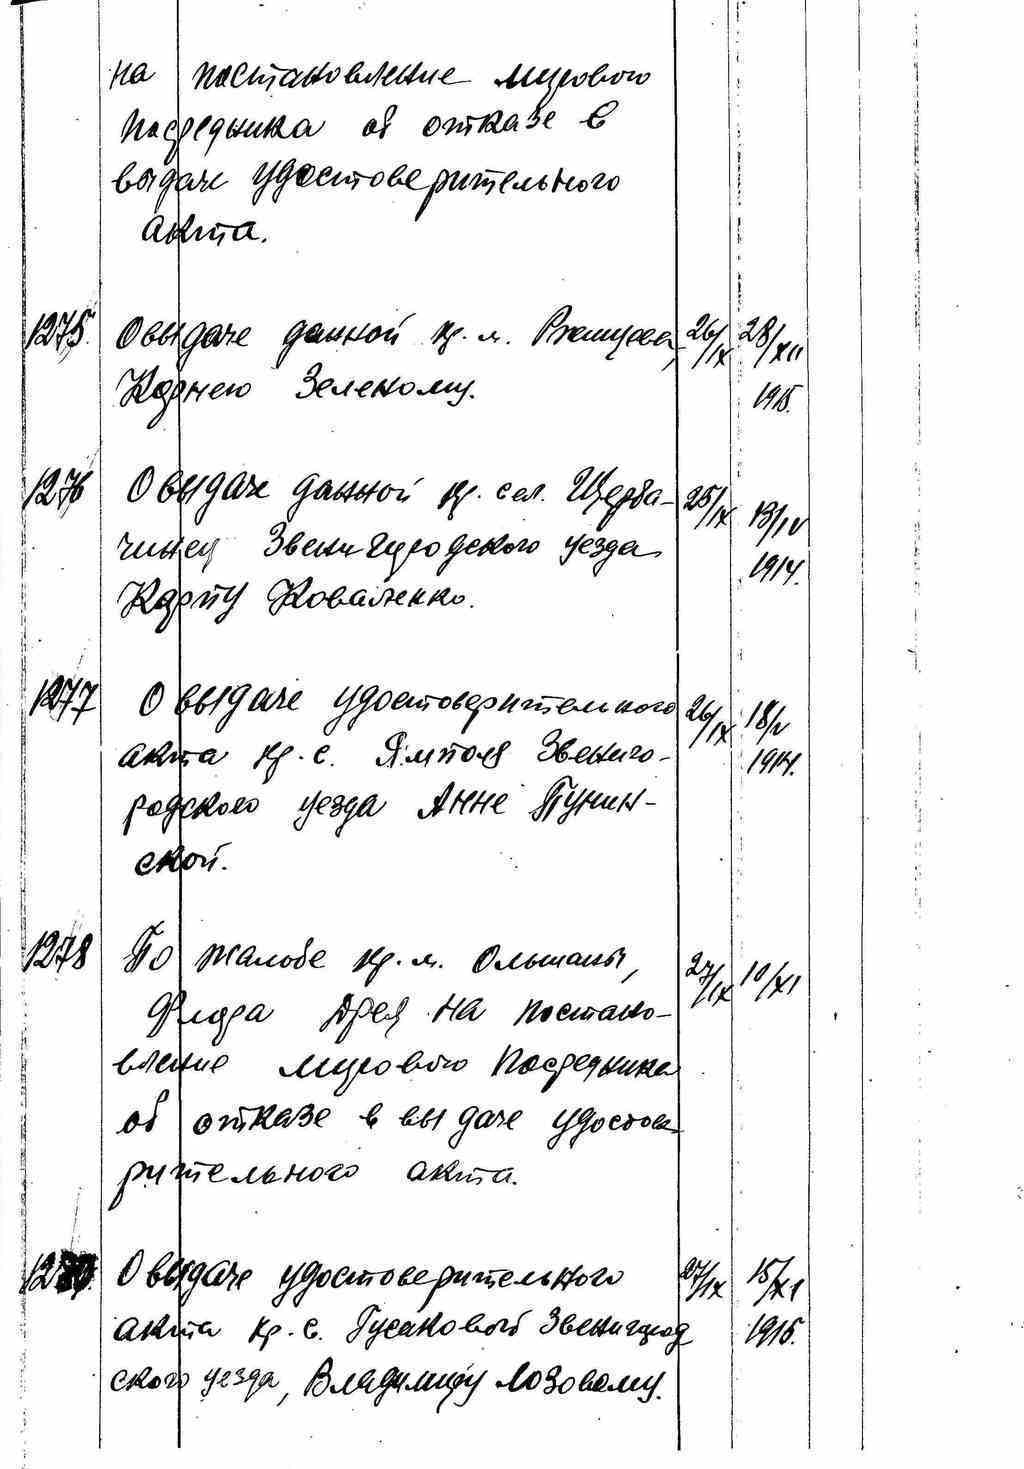 на постановление мирового
посредника об отказе в
выдаче удостоверительного
акта.
1275. О выдаче данной кр. м. 26/IX 28/XII
Корнею Зеленому. 1915.
1276 О выдаче данной кр. сел. Щерба- 25/IX 13/IV
чинец Звенигородского уезда 1914.
Карпу Коваленко.
1277 О выдаче удостоверительного 26/IX 18/V
акта кр. с. Ямполя Звениго- 1914.
родского уезда Анне Пунин-
ской.
1278 По жалобе кр. м. Ольшаны, 27/IX 10/XI
Федора на постано-
вление мирового посредника
об отказе в выдаче удостове-
рительного акта.
1279. О выдаче удостоверительного 27/IX 15/XI
акта кр. с. Гусаковой Звенигород 1915.
ского уезда, Владимиру Лозовому.